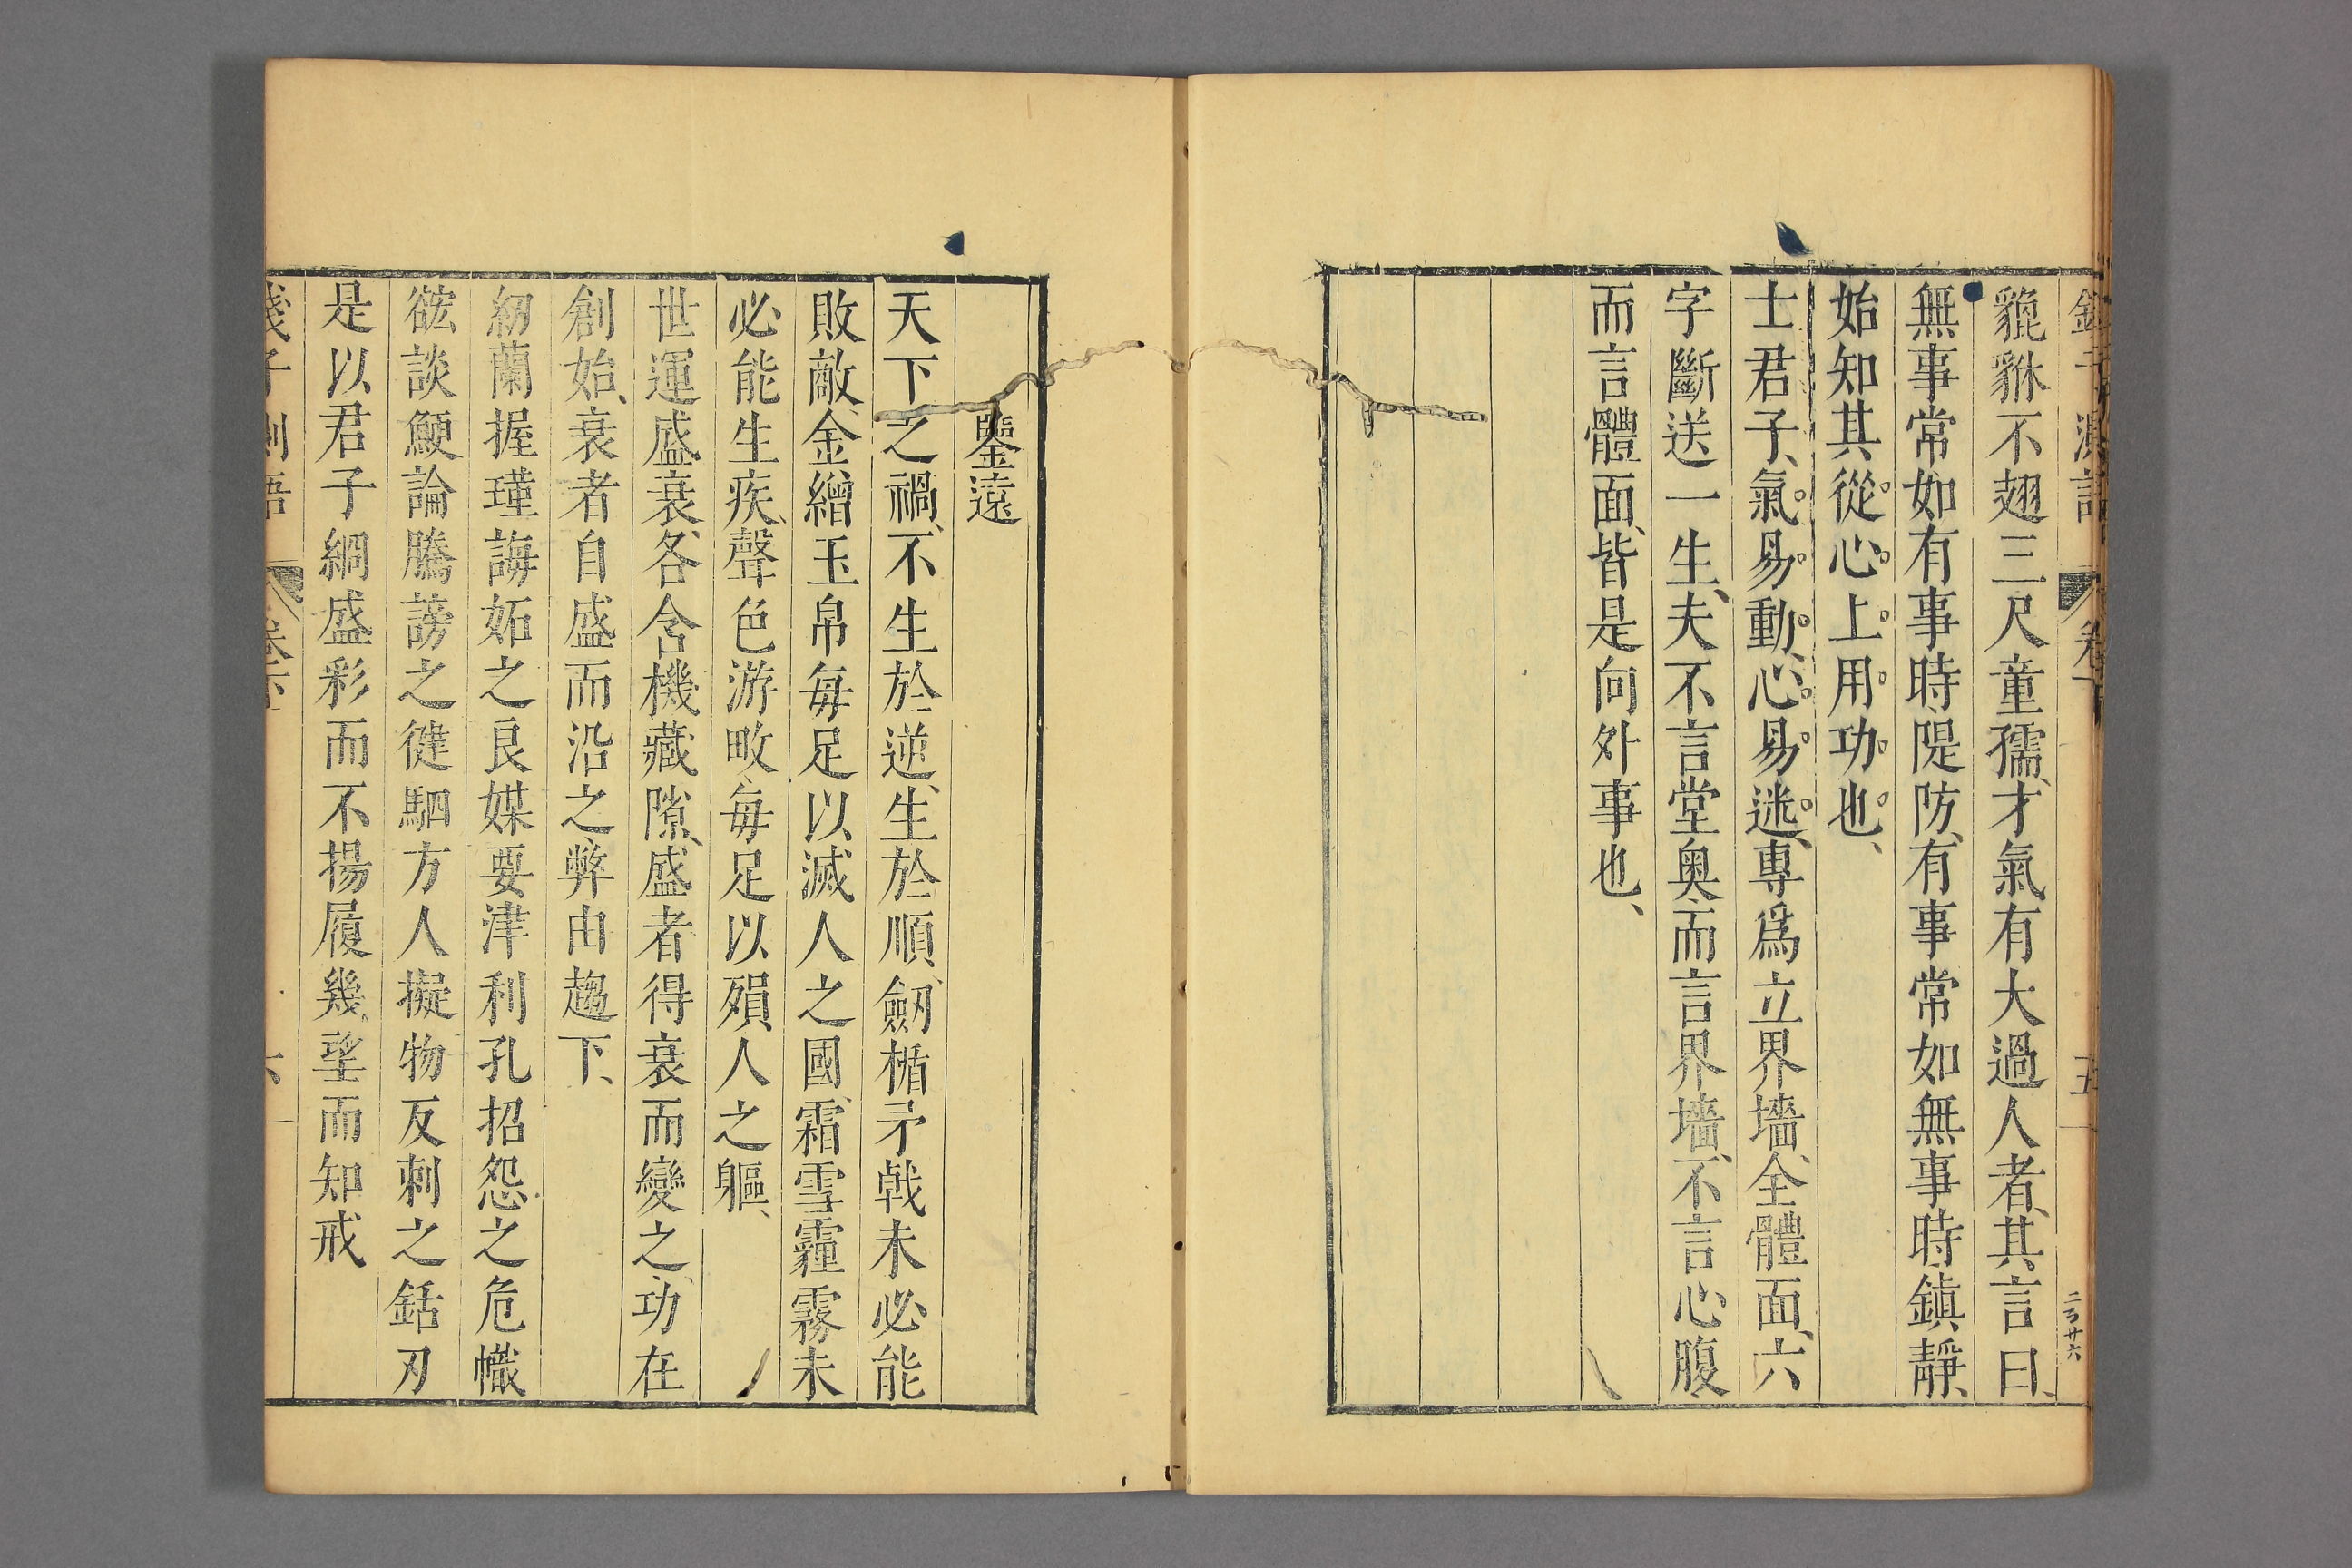 錢子測語 卷下 五
二百廿六
貔貅不翅三尺童孺、才氣有大過人者、其言曰、
無事常如有事時隄防、有事常如無事時鎮靜、
始知其從心上用功也、
士君子、氣易動、心易迷、專爲立界墻、全體面、六
字斷送一生、夫不言堂奧、而言界墻、不言心腹、
而言體面、皆是向外事也、
鑒遠
天下之禍、不生於逆、生於順、劒楯矛戟未必能
敗敵、金繒玉帛每足以滅人之國、霜雪霾霧未
必能生疾、聲色游畋、每足以殞人之軀、
世運盛衰、各含機藏隙、盛者得衰而變之、功在
創始、衰者自盛而沿之、弊由趨下、
紉蘭握瑾誨妬之良媒要津利孔招怨之危幟
谹談鯁論騰謗之徤駟方人擬物反刺之銛刃
是以君子綱盛彩而不揚履幾望而知戒
錢子測語 卷下 六